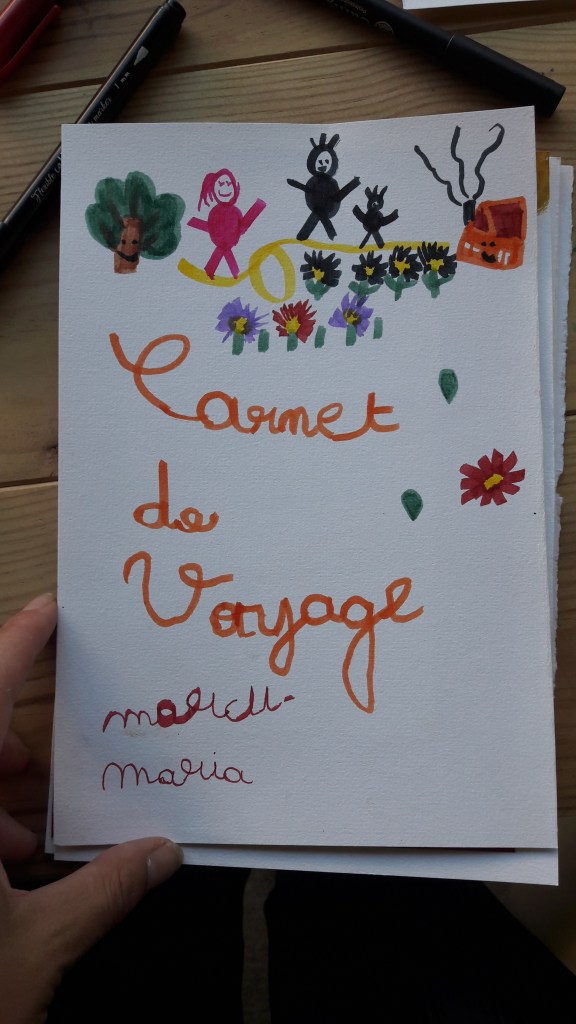 Carnet
de
Voyage
maria